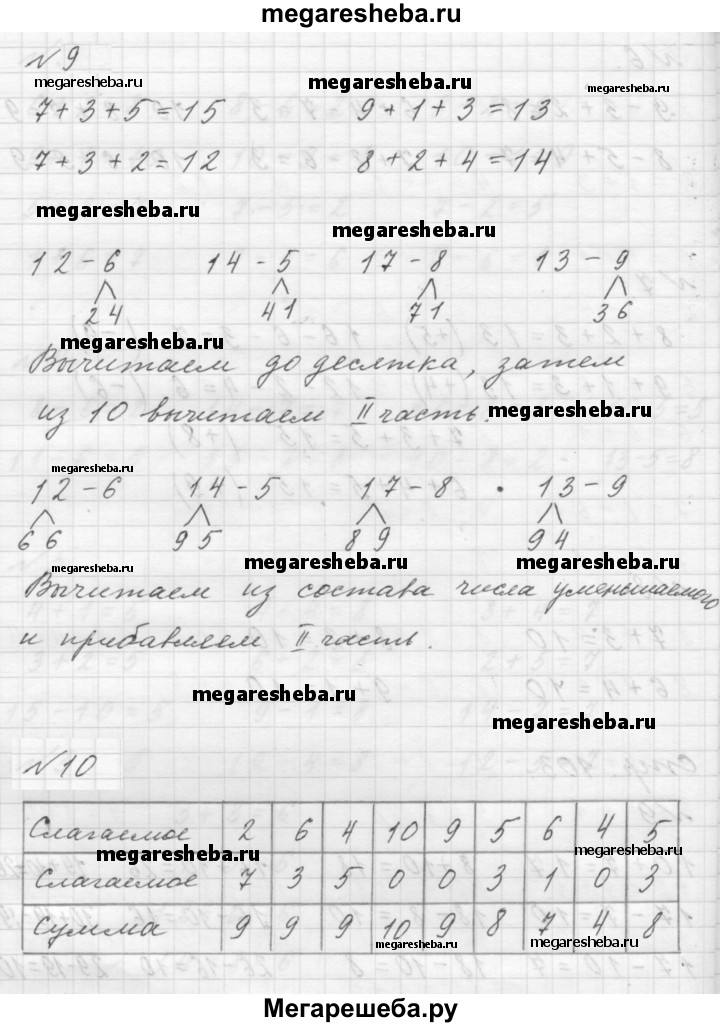 megaresheba.ru
№9
megaresheba.ru megaresheba.ru
7+3+5=15 9+1+3=13
7+3+2=12 8+2+4=14
megaresheba.ru
megaresheba.ru
12-6 14-5 17-8 13-9
24 41 71 36
megaresheba.ru
Вычитаем до десятка, затем
из 10 вычитаем II часть. megaresheba.ru
megaresheba.ru
12-6 14-5 17-8 13-9
66 95 89 94
megaresheba.ru megaresheba.ru
Вычитаем из состава числа уменьшаемого
и прибавляем II часть.
megaresheba.ru
megaresheba.ru
№10
Слагаемое 2 6 4 10 9 5 6 4 5
megaresheba.ru megaresheba.ru
Слагаемое 7 3 5 0 0 3 1 0 3
Сумма 9 9 9 10 9 8 7 4 8
megaresheba.ru megaresheba.ru
Мегарешеба.ру